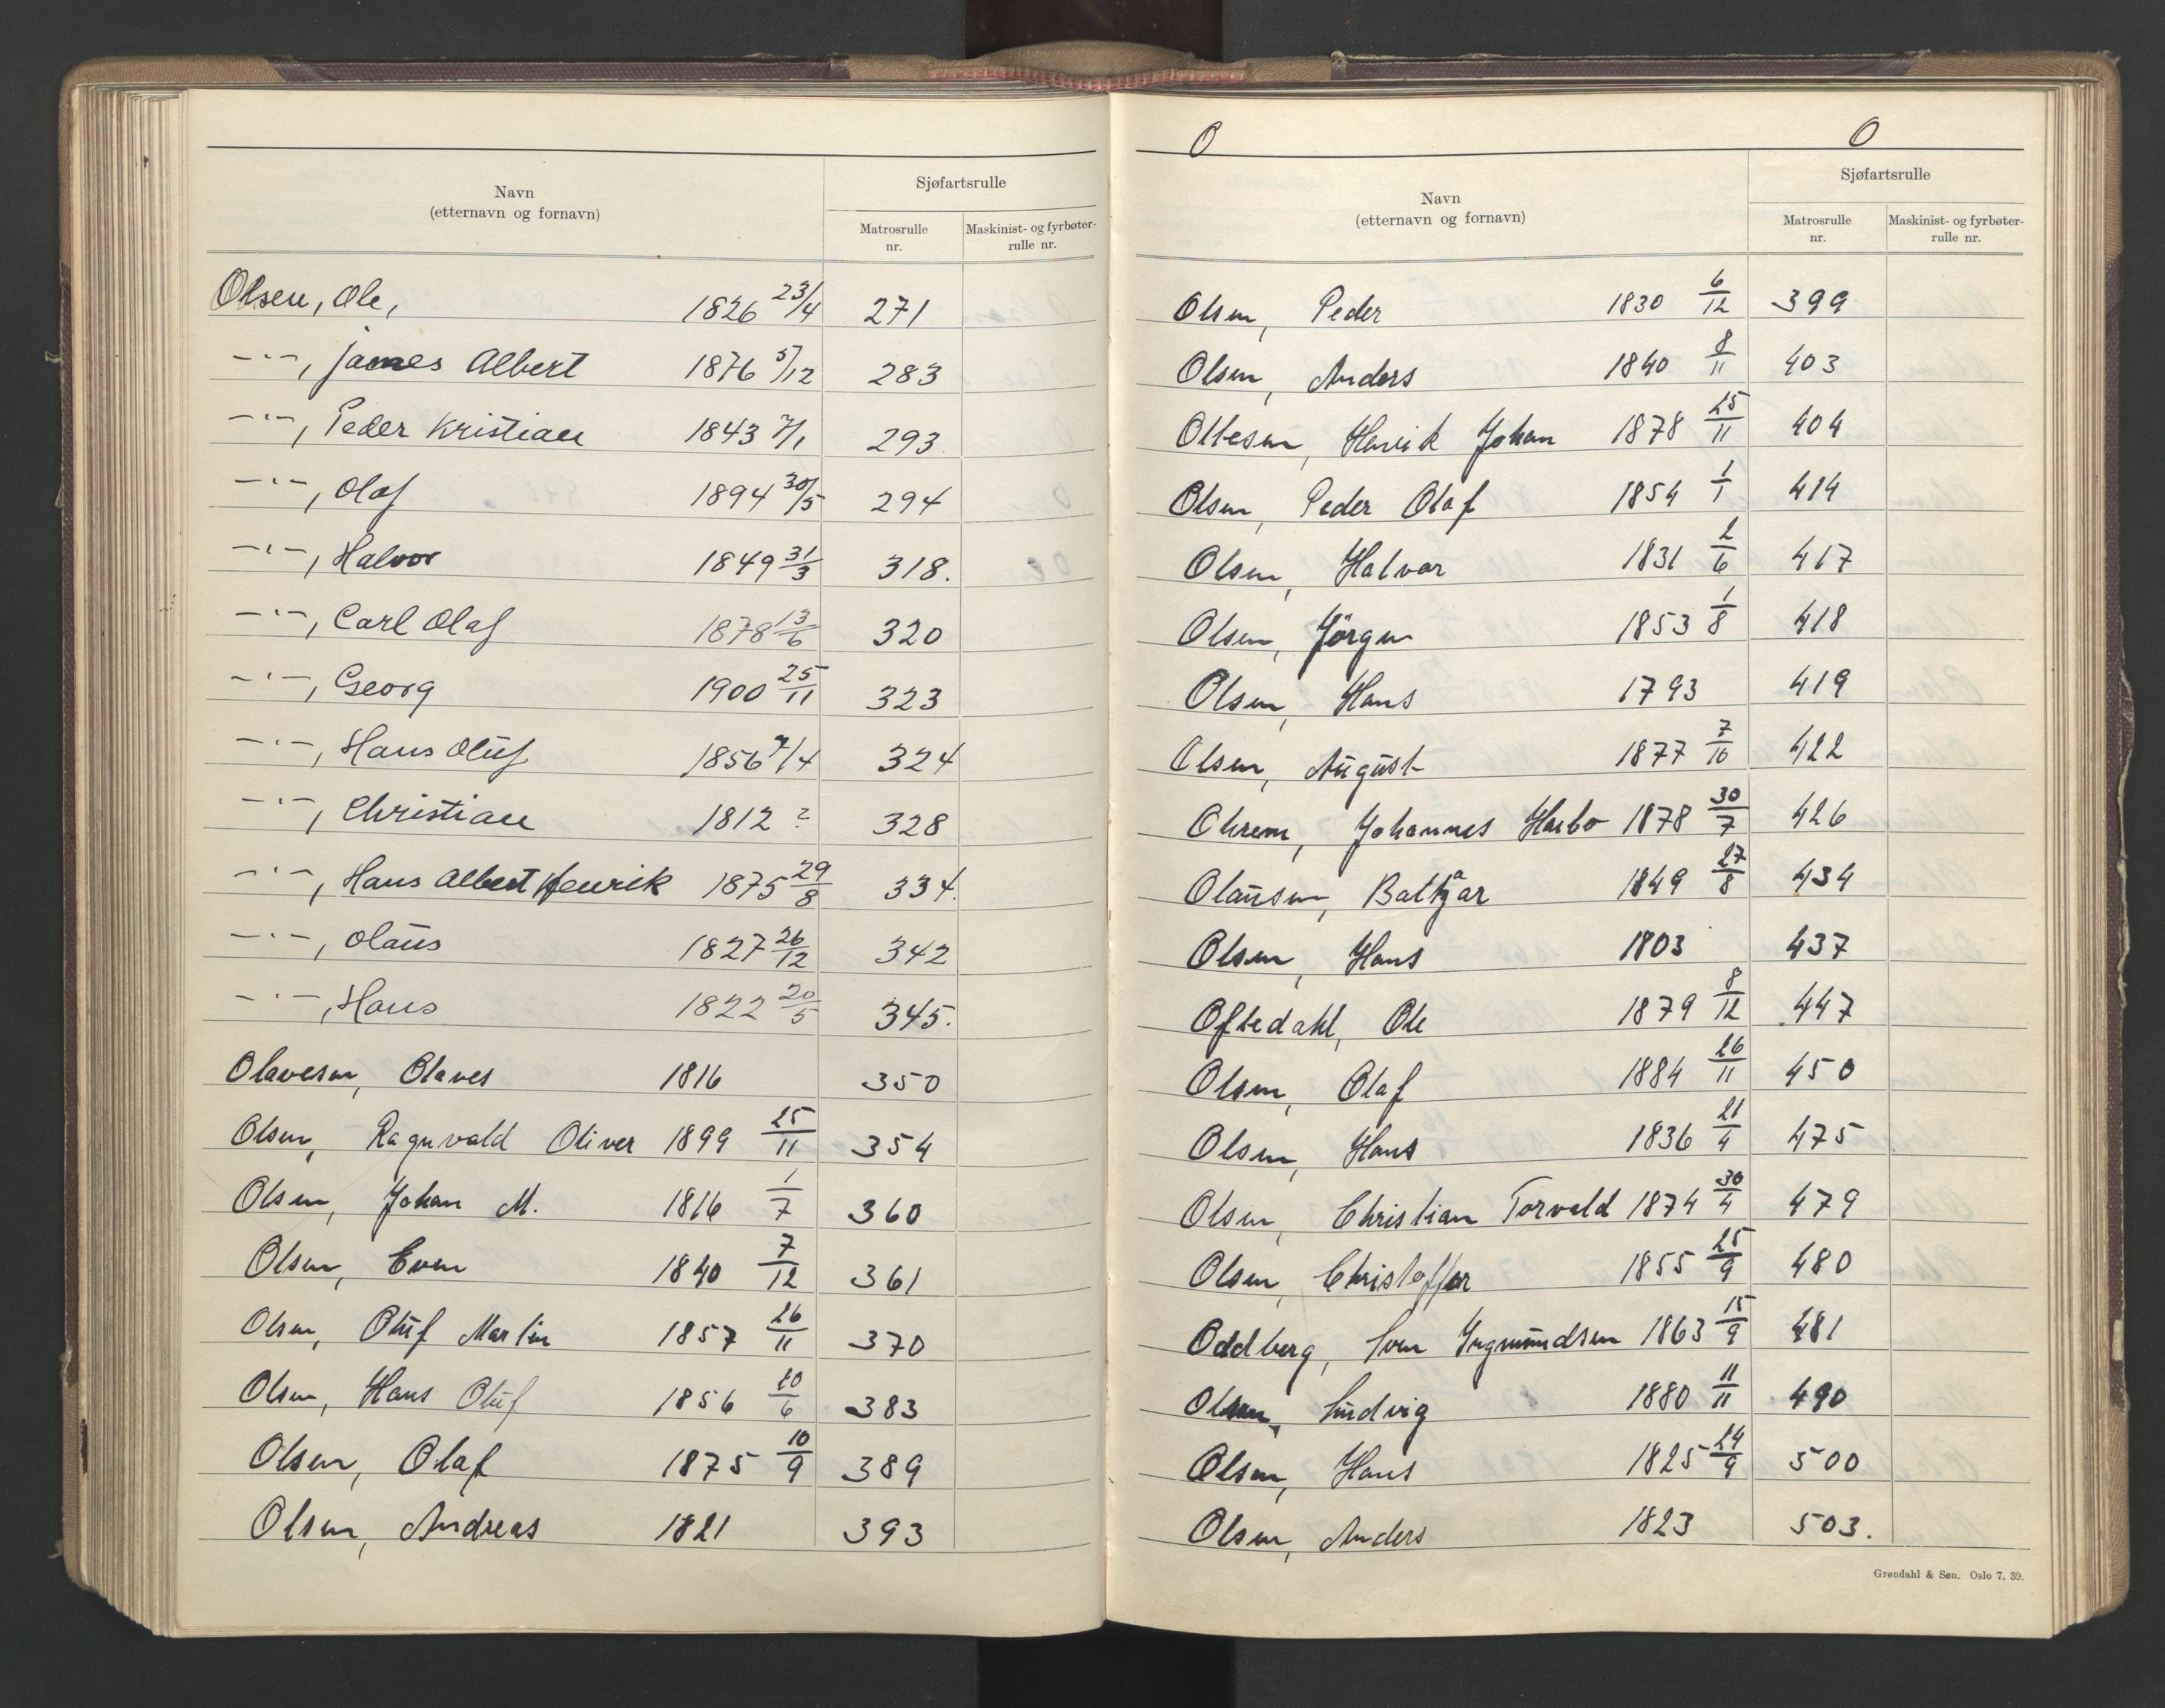 Navn
(etternavn og fornavn)
Sjøfartsrulle
Matrosrulle nr.
Maskinist- og fyrbøter-rulle nr.
Olsen, Ole, 1826 23/4 271
-"-, James Albert 1876 5/12 283
-"-, Peder Kristian 1843 7/1 293
-"-, Olaf 1894 30/5 294
-"-, Halvor 1849 31/3 318.
-"-, Carl Olaf 1878 13/6 320
-"-, Georg 1900 25/11 323
-"-, Hans Oluf 1856 7/4 324
-"-, Christian 1812 ? 328
-"-, Hans Albert Henrik 1875 29/8 334.
-"-, Olaus 1827 26/12 342
-"-, Hans 1822 20/5 345.
Olavesen, Olaves 1816 350
Olsen, Ragnvald Oliver 1899 25/11 354
Olsen, Johan M. 1816 1/7 360
Olsen, Even 1840 7/12 361
Olsen, Oluf Martin 1857 26/11 370
Olsen, Hans Oluf 1856 20/6 383
Olsen, Olaf 1875 10/9 389
Olsen, Andreas 1821 393
O O
Navn
(etternavn og fornavn)
Sjøfartsrulle
Matrosrulle nr.
Maskinist- og fyrbøter-rulle nr.
Olsen, Peder 1830 6/12 399
Olsen, Anders 1840 8/11 403
Ottesen, Henrik Johan 1878 25/11 404
Olsen, Peder Olaf 1854 1/1 414
Olsen, Halvor 1831 2/6 417
Olsen, Jörgen 1853 1/8 418
Olsen, Hans 1793 419
Olsen, August 1877 7/10 422
Ohrem, Johannes Harbo 1878 30/7 426
Olausen, Baltzar 1849 27/8 434
Olsen, Hans 1803 437
Oftedahl, Ole 1879 8/12 447
Olsen, Olaf 1884 26/11 450
Olsen, Hans 1836 21/4 475
Olsen, Christian Torvald 1874 30/4 479
Olsen, Christoffer 1855 25/9 480
Oddberg, Sven 1863 15/9 481
Olsen, Ludvig 1880 11/11 490
Olsen, Hans 1825 24/9 500
Olsen, Anders 1823 503.
Grøndahl & Søn. Oslo 7. 39.